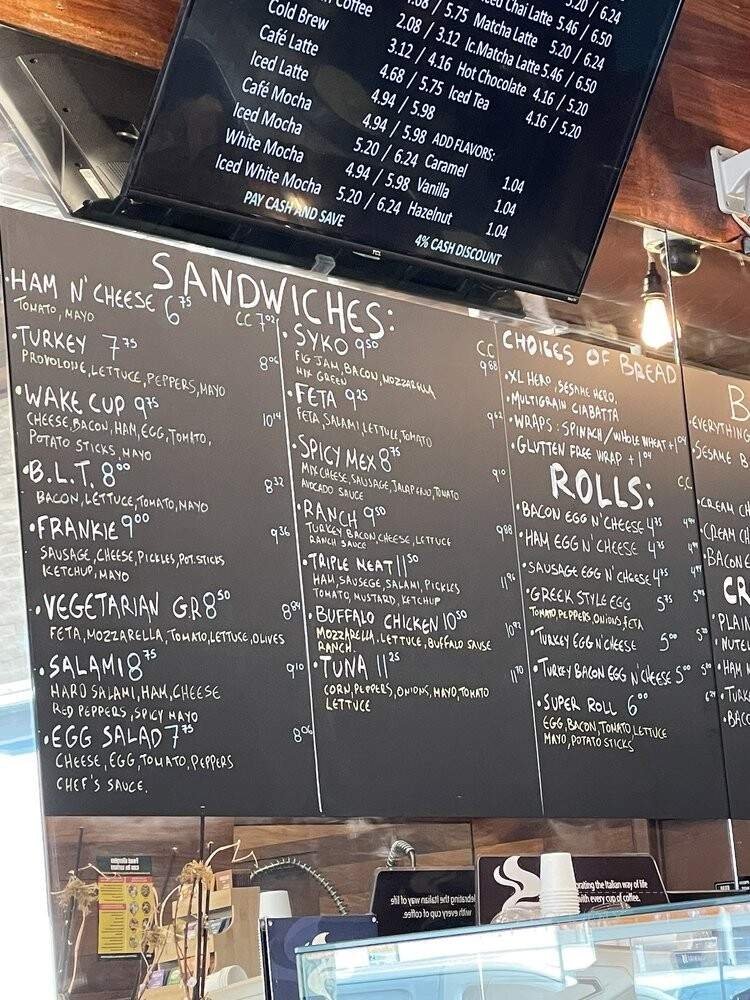 Coffee
Cold Brew 2.08 / 3.12
Café Latte 3.12 / 4.16
Iced Latte 4.68 / 5.75
Café Mocha 4.94 / 5.98
Iced Mocha 4.94 / 5.98
White Mocha 5.20 / 6.24
Iced White Mocha 4.94 / 5.98
5.20 / 6.24
PAY CASH AND SAVE
5.20 / 6.24
Iced Chai Latte 5.46 / 6.50
Matcha Latte 5.20 / 6.24
Ic.Matcha Latte 5.46 / 6.50
Hot Chocolate 4.16 / 5.20
Iced Tea 4.16 / 5.20
ADD FLAVORS:
Caramel 1.04
Vanilla 1.04
Hazelnut 1.04
4% CASH DISCOUNT
SANDWICHES:
•HAM N' CHEESE 6 75 CC 7 02
TOMATO, MAYO
•TURKEY 7 75 8 06
PROVOLONE, LETTUCE, PEPPERS, MAYO
•WAKE CUP 9 75 10 14
CHEESE, BACON, HAM, EGG, TOMATO,
POTATO STICKS, MAYO
•B.L.T. 8 00 8 32
BACON, LETTUCE, TOMATO, MAYO
•FRANKIE 9 00 9 36
SAUSAGE, CHEESE, PICKLES, POT.STICKS
KETCHUP, MAYO
•VEGETARIAN G.R 8 50 8 84
FETA, MOZZARELLA, TOMATO, LETTUCE, OLIVES
•SALAMI 8 75 9 10
HARD SALAMI, HAM, CHEESE
RED PEPPERS, SPICY MAYO
•EGG SALAD 7 75 8 06
CHEESE, EGG, TOMATO, PEPPERS
CHEF'S SAUCE.
•SYKO 9 50 CC 9 88
FIG JAM, BACON, MOZZARELLA
MIX GREEN
•FETA 9 25 9 62
FETA, SALAMI, LETTUCE, TOMATO
•SPICY MEX 8 75 9 10
MIX CHEESE, SAUSAGE, JALAPENO, TOMATO
AVOCADO SAUCE
•RANCH 9 50 9 88
TURKEY BACON CHEESE, LETTUCE
RANCH SAUCE
•TRIPLE MEAT 11 50 11 96
HAM, SAUSEGE, SALAMI, PICKLES
TOMATO, MUSTARD, KETCHUP
•BUFFALO CHICKEN 10 50 10 92
MOZZARELLA, LETTUCE, BUFFALO SAUSE
RANCH.
•TUNA 11 25 11 70
CORN, PEPPERS, ONIONS, MAYO, TOMATO
LETTUCE
CHOICES OF BREAD
•XL HERO, SESAME HERO,
MULTIGRAIN CIABATTA
•WRAPS: SPINACH / WHOLE WHEAT +1 04
•GLUTTEN FREE WRAP +1 04
ROLLS: CC
•BACON EGG N' CHEESE 4 75
•HAM EGG N' CHEESE 4 75
•SAUSAGE EGG N' CHEESE 4 75
•GREEK STYLE EGG 5 75
TOMATO, PEPPERS, ONIONS, FETA
•TURKEY EGG N' CHEESE 5 00
•TURKEY BACON EGG N' CHEESE 5 00
•SUPER ROLL 6 00
EGG, BACON, TOMATO, LETTUCE
MAYO, POTATO STICKS
B
•EVERYTHING
•SESAME B
•CREAM CH
•CREAM CH
•BACON E
CR
•PLAIN
•NUTEL
•HAM N
•TURK
•BAC
Food allergies
elebrating the Italian way of life
with every cup of coffee.
brating the Italian way of life
with every cup of coffee.